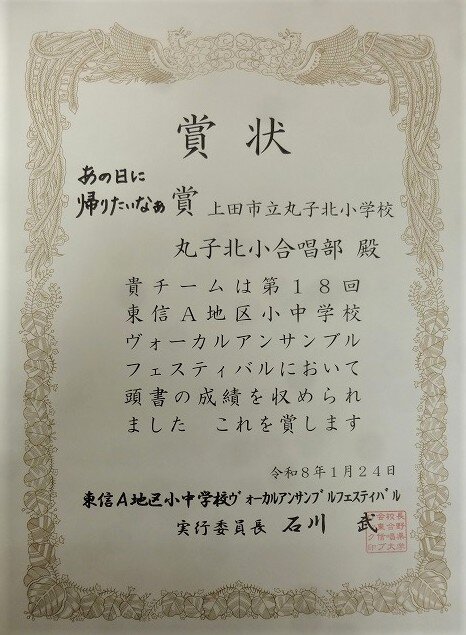 賞状
あの日に
帰りたいなぁ賞 上田市立丸子北小学校
丸子北小合唱部 殿
貴チームは第18回
東信A地区小中学校
ヴォーカルアンサンブル
フェスティバルにおいて
頭書の成績を収められ
ました これを賞します
令和8年1月24日
東信A地区小中学校ヴォーカルアンサンブルフェスティバル
実行委員長 石川 武